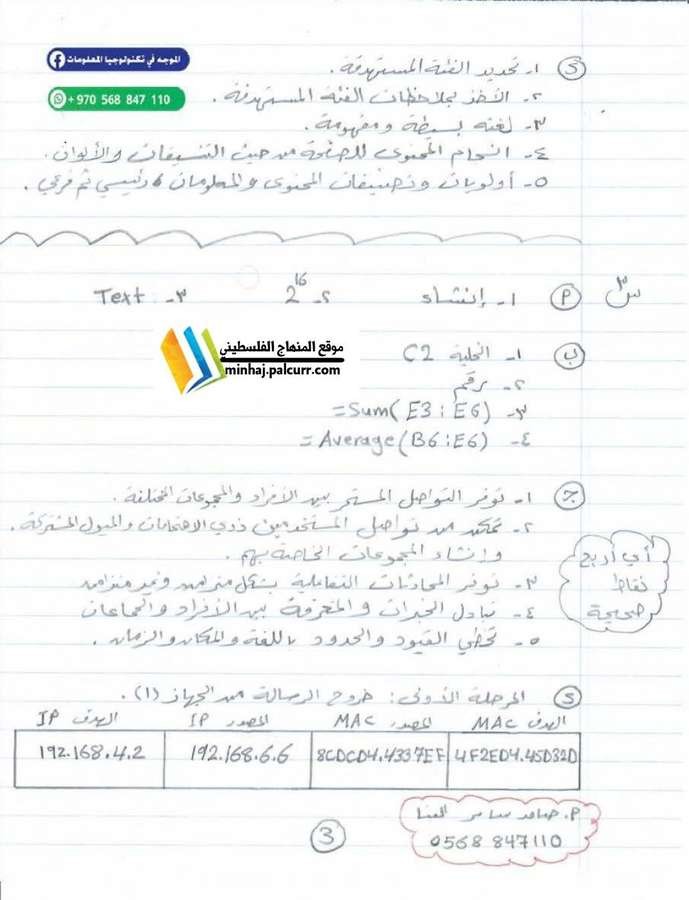 الموجه في تكنولوجيا المعلومات
+ 970 568 847 110
د ١- تحديد الفئة المستهدفة.
٢- الأخذ بملاحظات الفئة المستهدفة.
٣- لغته بسيطة ومفهومة.
٤- انسجام المحتوى للصفحة من حيث التنسيقات والألوان.
٥- أولويات وتصنيفات المحتوى والمعلومات، رئيسي ثم فرعي.
س٣ أ ١- إنشاء ٢- 2^16 ٣- Text
موقع المنهاج الفلسطيني
minhaj.palcurr.com
ب ١- الخلية C2
٢- برقم
٣- =Sum(E3:E6)
٤- =Average(B6:E6)
ج ١- توفر التواصل المستمر بين الأفراد والمجموعات المختلفة.
٢- تمكن من تواصل المستخدمين ذوي الاهتمامات والميول المشتركة.
وإنشاء المجموعات الخاصة بهم.
٣- توفر المحادثات التفاعلية بشكل متزامن وغير متزامن
٤- تبادل الخبرات والمعرفة بين الأفراد والجماعات
٥- تخطي القيود والحدود باللغة والمكان والزمان.
أي أربع
نقاط
صحيحة
د المرحلة الأولى: خروج الرسالة من الجهاز (1).
الهدف MAC المصدر MAC المصدر IP الهدف IP
4F2ED4.45D32D 8CDCD4.4337EF 192.168.6.6 192.168.4.2
م. سامر
0568 847110
3